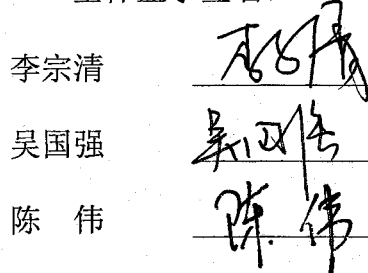 李宗清 李宗清
吴国强 吴国强
陈 伟 陈伟